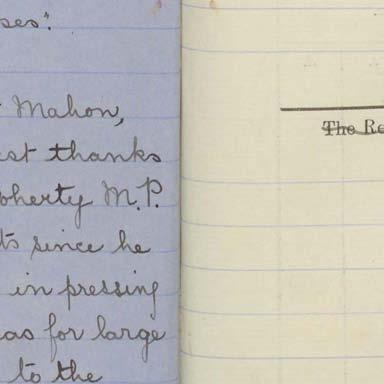 ses".
Mahon,
est thanks
oherty M.P.
ts since he
in pressing
eas for large
to the
The Re